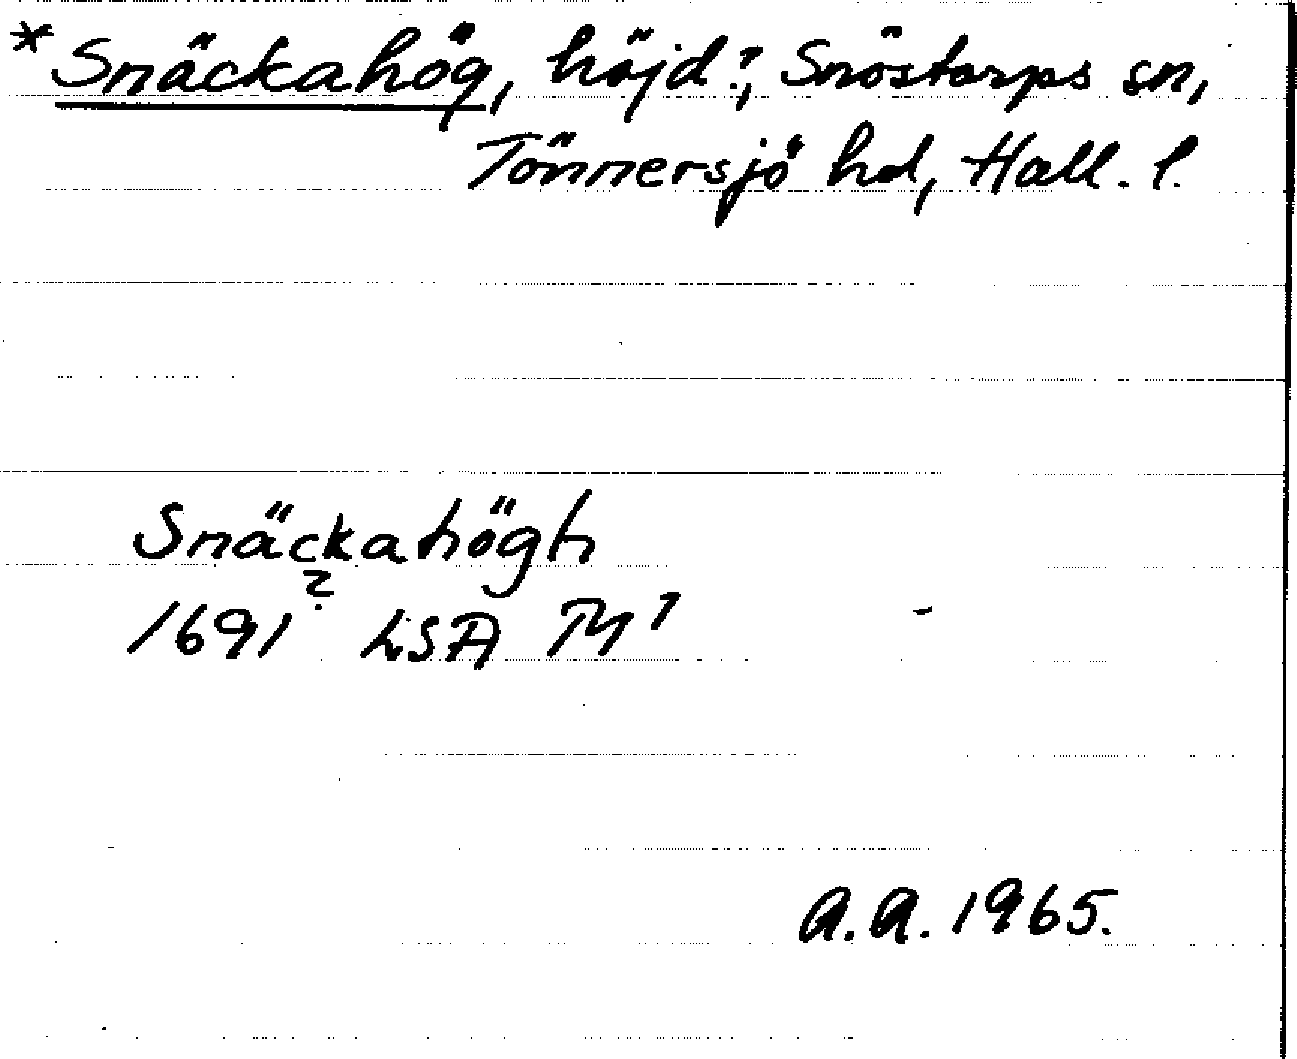 *Snäckahög, höjd?, Snöstorps sn,
Tönnersjö hd, Hall. l.
Snäckahögh
?
1691 LSA M¹
A.A. 1965.